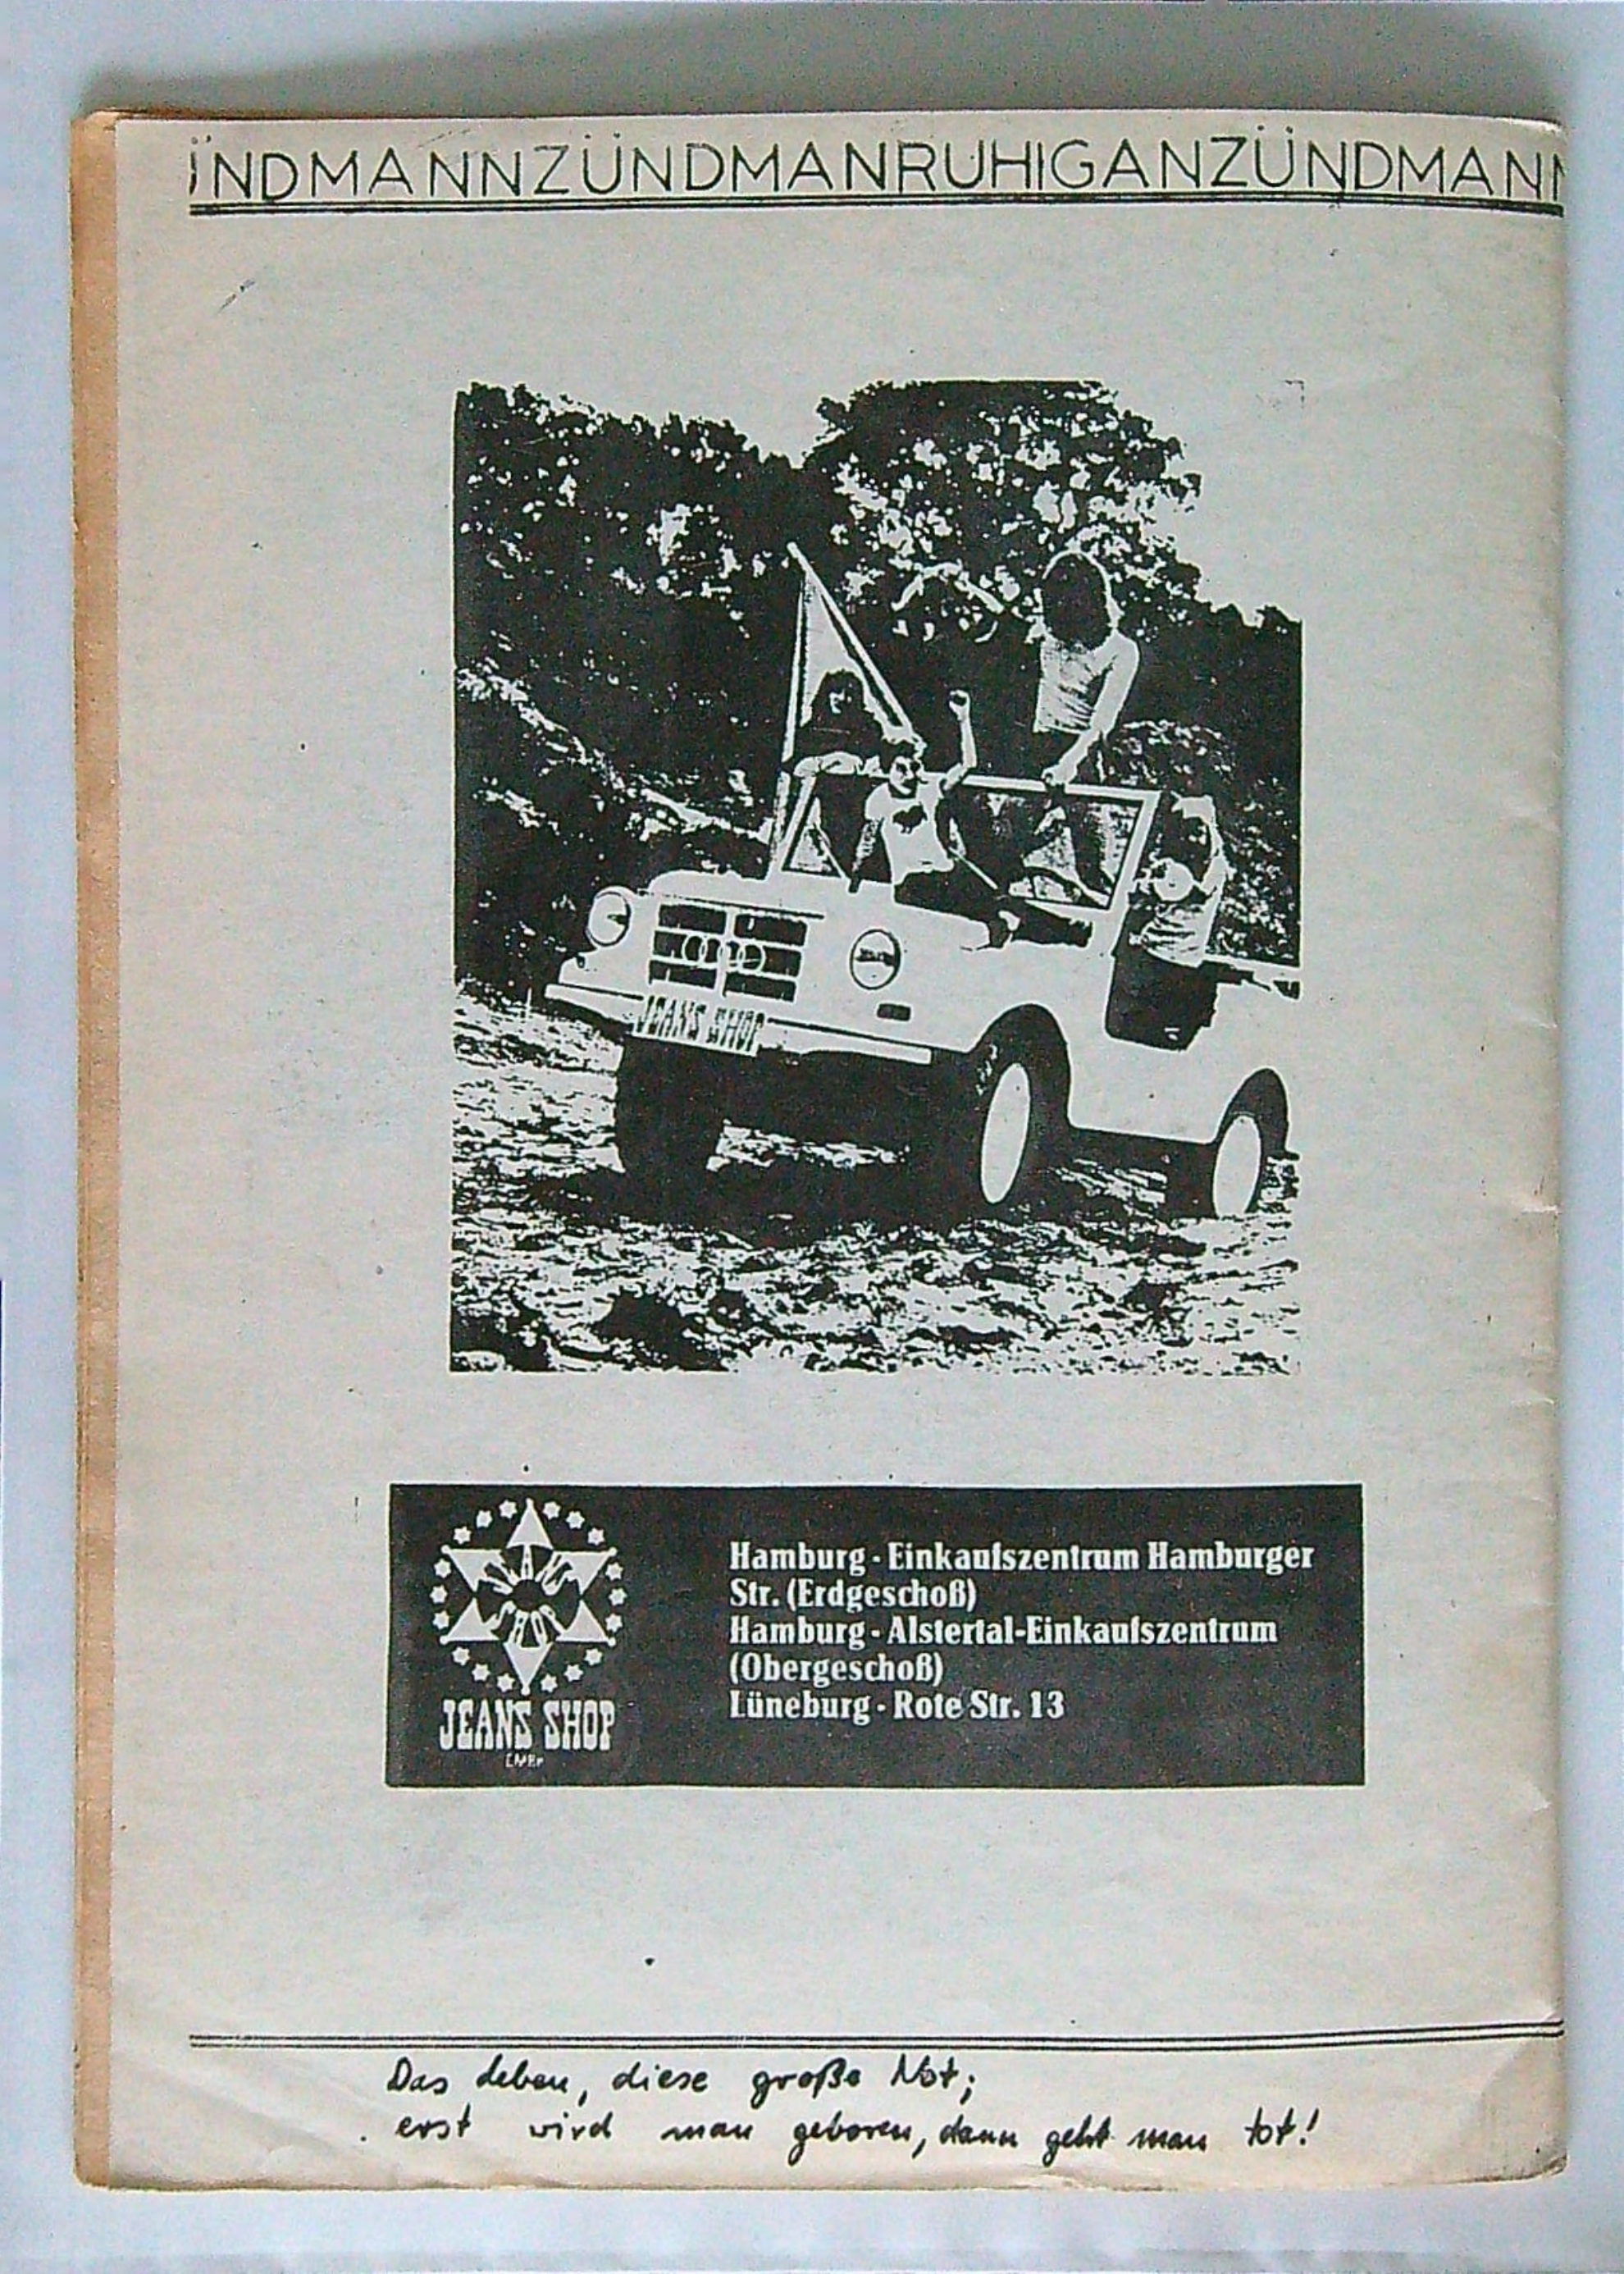 ÜNDMANNZÜNDMANRUHIGANZÜNDMANN
JEANS SHOP
Hamburg - Einkaufszentrum Hamburger
Str. (Erdgeschoß)
Hamburg - Alstertal-Einkaufszentrum
(Obergeschoß)
Lüneburg - Rote Str. 13
JEANS SHOP
Das Leben, diese große Not;
erst wird man geboren, dann geht man tot!